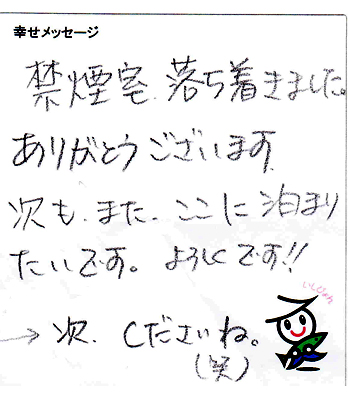 幸せメッセージ
禁煙室、落ち着きました。
ありがとうございます。
次も、また、ここに泊まり
たいです。よろしくです!!
→ 次、くださいね。
(笑)